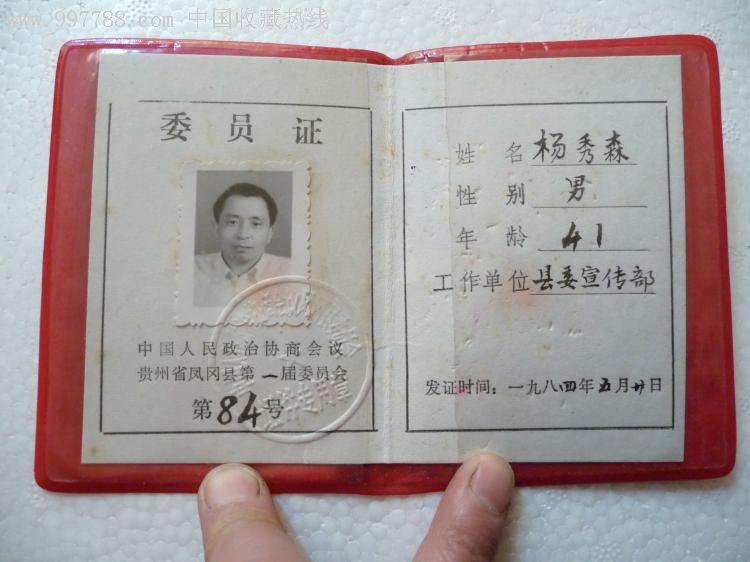 www.997788.com 中国收藏热线
委员证
中国人民政治协商会议
贵州省凤冈县第一届委员会
第84号
姓名 杨秀森
性别 男
年龄 41
工作单位 县委宣传部
发证时间：一九八四年五月廿日